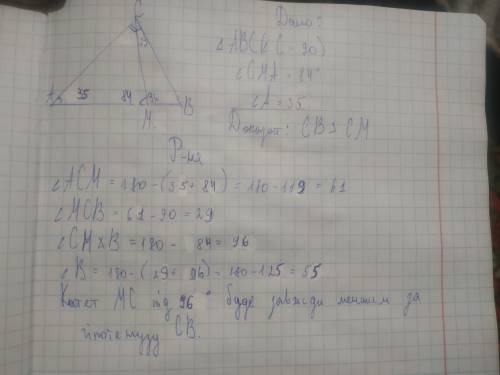 C
29
A 35 84 96 B
M
Дано:
∠ABC(∠C - 90)
∠CMA = 84°
∠A = 35
Доказат: CB > CM
Р-ня
∠ACM = 180-(35+84) = 180-119 = 61
∠MCB = 61 - 90 = 29
∠CMB = 180 - 84 = 96
∠B = 180-(29+96) = 180-125 = 55
Катет MC під 96° буде завжди меншим за
гіпотенузу CB.